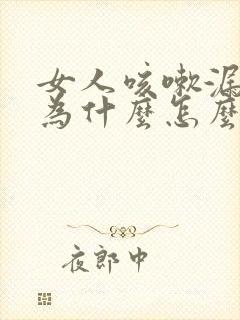 女人咳嗽漏
為什麼怎麼
夜郎中